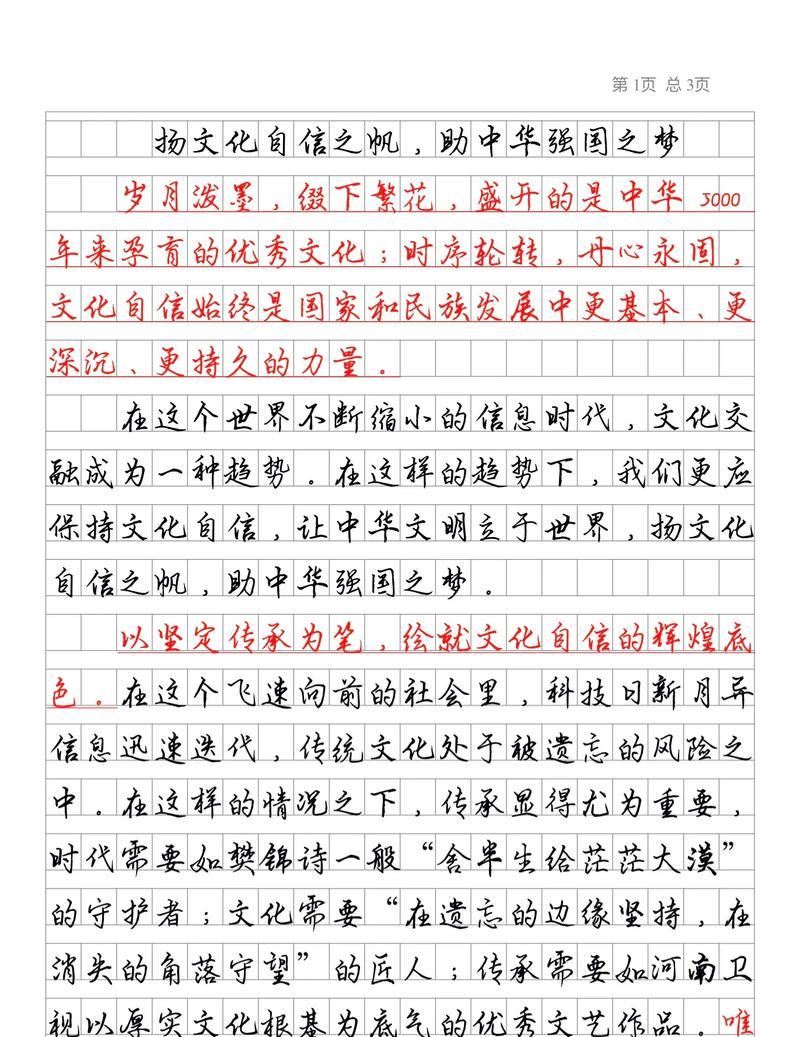 第1页 总3页
扬文化自信之帆，助中华强国之梦
岁月泼墨，缀下繁花，盛开的是中华 5000
年来孕育的优秀文化；时序轮转，丹心永固，
文化自信始终是国家和民族发展中更基本、更
深沉、更持久的力量。
在这个世界不断缩小的信息时代，文化交
融成为一种趋势。在这样的趋势下，我们更应
保持文化自信，让中华文明立于世界，扬文化
自信之帆，助中华强国之梦。
以坚定传承为笔，绘就文化自信的辉煌底
色。在这个飞速向前的社会里，科技日新月异
信息迅速迭代，传统文化处于被遗忘的风险之
中。在这样的情况之下，传承显得尤为重要，
时代需要如樊锦诗一般“舍半生给茫茫大漠”
的守护者；文化需要“在遗忘的边缘坚持，在
消失的角落守望”的匠人；传承需要如河南卫
视以厚实文化根基为底气的优秀文艺作品。唯